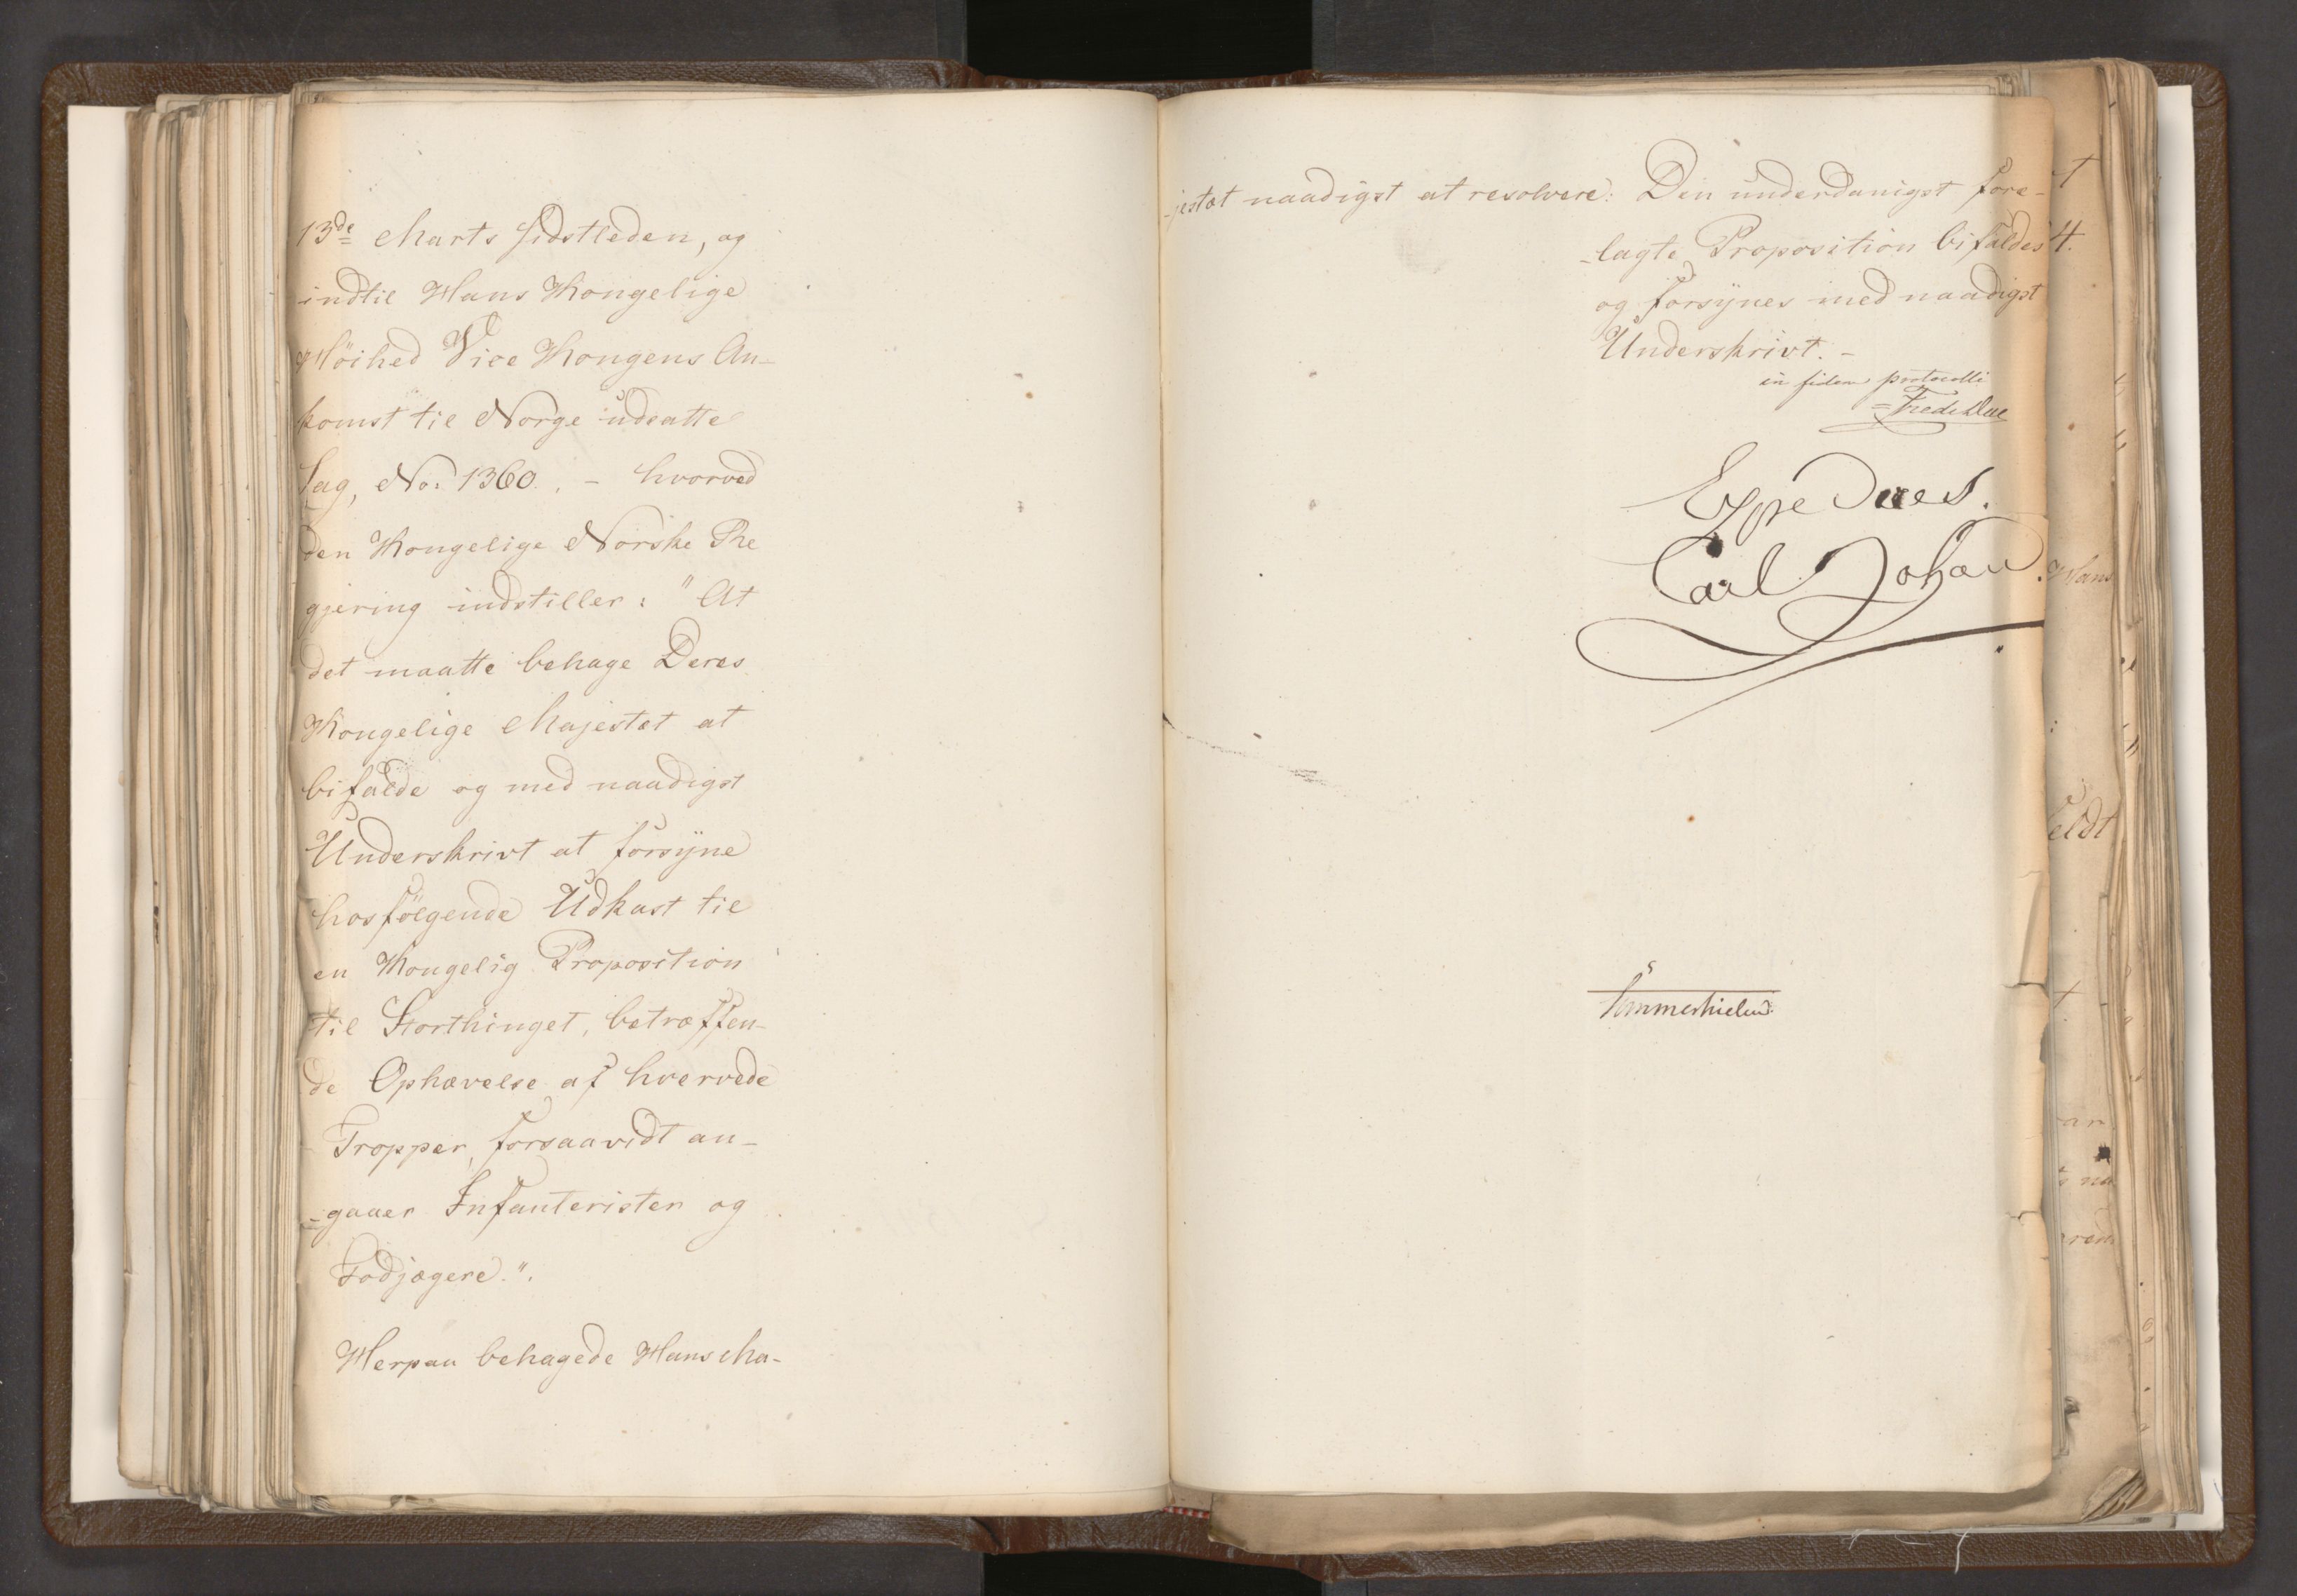 13de Marts sidstleden, og
indtil Hans Kongelige
Höihed Vice Kongens An-
komst til Norge udsatte
Sag, No. 1360. - hvorved
den Kongelige Norske Re
gjering indstiller: "At
det maatte behage Deres
Kongelige Majestæt at
bifalde og med naadigst
Underskrivt at forsyne
hosfölgende Udkast til
en Kongelig Proposition
til Storthinget, betræffen-
de Ophævelse af hvervede
Tropper, forsaavidt an-
-gaaer Infanterister og
Fodjægere.".
Herpaa behagede Hans Ma-
-jestæt naadigst at resolvere: Den underdanigst fore-
-lagte Proposition bifaldes
og forsynes med naadigst
Underskrivt. -
in fidem protocolli
Fredr Due
Expederes.
Carl Johan.
Sommerhielm
Hans
eldt